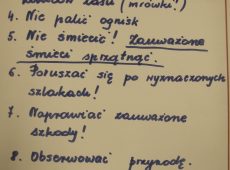 lasu (mrówki!)
4. Nie palić ognisk
5. Nie śmiecić! Zauważone
śmieci sprzątnąć.
6. Poruszać się po wyznaczonych
szlakach!
7. Naprawiać zauważone
szkody!
8. Obserwować przyrodę.